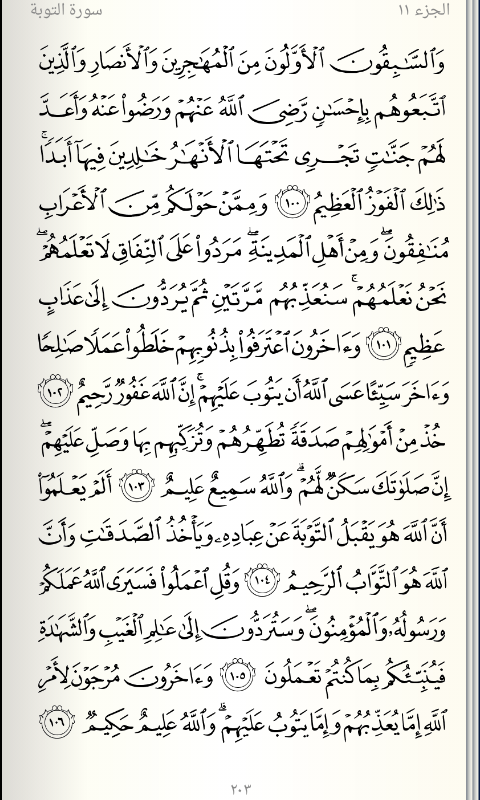 الجزء ١١ سورة التوبة
وَٱلسَّـٰبِقُونَ ٱلْأَوَّلُونَ مِنَ ٱلْمُهَـٰجِرِينَ وَٱلْأَنصَارِ وَٱلَّذِينَ
ٱتَّبَعُوهُم بِإِحْسَـٰنٍ رَّضِىَ ٱللَّهُ عَنْهُمْ وَرَضُوا۟ عَنْهُ وَأَعَدَّ
لَهُمْ جَنَّـٰتٍ تَجْرِى تَحْتَهَا ٱلْأَنْهَـٰرُ خَـٰلِدِينَ فِيهَآ أَبَدًا ۚ
ذَٰلِكَ ٱلْفَوْزُ ٱلْعَظِيمُ ١٠٠ وَمِمَّنْ حَوْلَكُم مِّنَ ٱلْأَعْرَابِ
مُنَـٰفِقُونَ ۖ وَمِنْ أَهْلِ ٱلْمَدِينَةِ ۖ مَرَدُوا۟ عَلَى ٱلنِّفَاقِ لَا تَعْلَمُهُمْ ۖ
نَحْنُ نَعْلَمُهُمْ ۚ سَنُعَذِّبُهُم مَّرَّتَيْنِ ثُمَّ يُرَدُّونَ إِلَىٰ عَذَابٍ
عَظِيمٍ ١٠١ وَءَاخَرُونَ ٱعْتَرَفُوا۟ بِذُنُوبِهِمْ خَلَطُوا۟ عَمَلًا صَـٰلِحًا
وَءَاخَرَ سَيِّئًا عَسَى ٱللَّهُ أَن يَتُوبَ عَلَيْهِمْ ۚ إِنَّ ٱللَّهَ غَفُورٌ رَّحِيمٌ ١٠٢
خُذْ مِنْ أَمْوَٰلِهِمْ صَدَقَةً تُطَهِّرُهُمْ وَتُزَكِّيهِم بِهَا وَصَلِّ عَلَيْهِمْ ۖ
إِنَّ صَلَوٰتَكَ سَكَنٌ لَّهُمْ ۗ وَٱللَّهُ سَمِيعٌ عَلِيمٌ ١٠٣ أَلَمْ يَعْلَمُوٓا۟
أَنَّ ٱللَّهَ هُوَ يَقْبَلُ ٱلتَّوْبَةَ عَنْ عِبَادِهِۦ وَيَأْخُذُ ٱلصَّدَقَـٰتِ وَأَنَّ
ٱللَّهَ هُوَ ٱلتَّوَّابُ ٱلرَّحِيمُ ١٠٤ وَقُلِ ٱعْمَلُوا۟ فَسَيَرَى ٱللَّهُ عَمَلَكُمْ
وَرَسُولُهُۥ وَٱلْمُؤْمِنُونَ ۖ وَسَتُرَدُّونَ إِلَىٰ عَـٰلِمِ ٱلْغَيْبِ وَٱلشَّهَـٰدَةِ
فَيُنَبِّئُكُم بِمَا كُنتُمْ تَعْمَلُونَ ١٠٥ وَءَاخَرُونَ مُرْجَوْنَ لِأَمْرِ
ٱللَّهِ إِمَّا يُعَذِّبُهُمْ وَإِمَّا يَتُوبُ عَلَيْهِمْ ۗ وَٱللَّهُ عَلِيمٌ حَكِيمٌ ١٠٦
٢٠٣